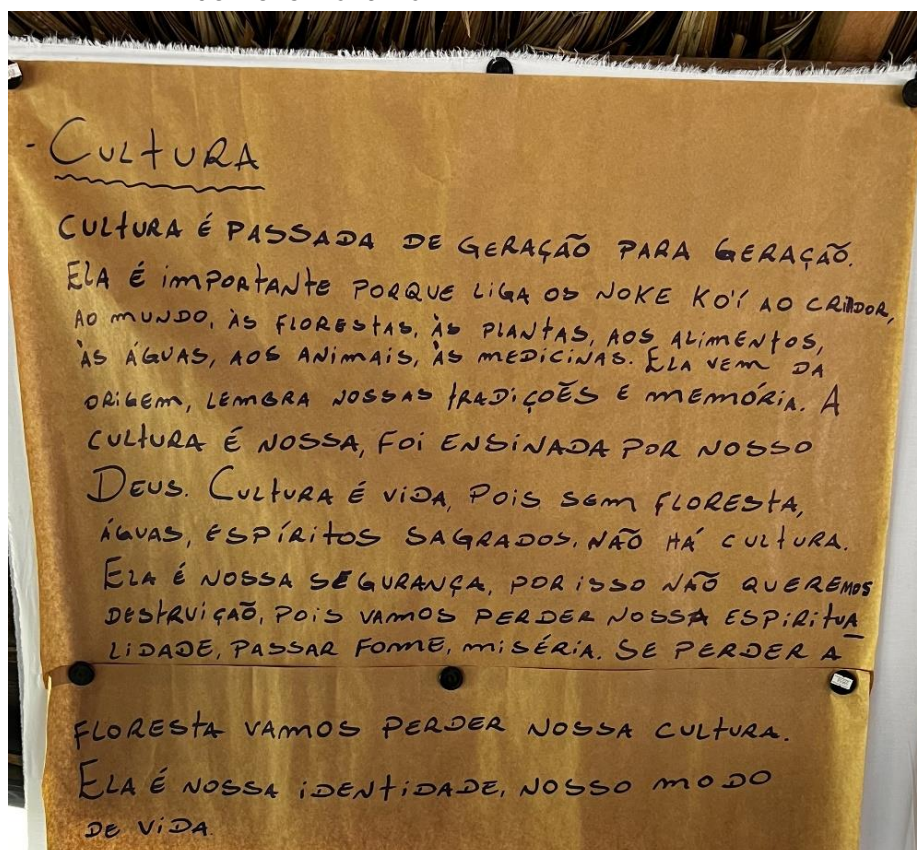 - CULTURA
CULTURA É PASSADA DE GERAÇÃO PARA GERAÇÃO.
ELA É IMPORTANTE PORQUE LIGA OS NOKE KO'Í AO CRIADOR,
AO MUNDO, ÀS FLORESTAS, ÀS PLANTAS, AOS ALIMENTOS,
ÀS ÁGUAS, AOS ANIMAIS, ÀS MEDICINAS. ELA VEM DA
ORIGEM, LEMBRA NOSSAS TRADIÇÕES E MEMÓRIA. A
CULTURA É NOSSA, FOI ENSINADA POR NOSSO
DEUS. CULTURA É VIDA, POIS SEM FLORESTA,
ÁGUAS, ESPÍRITOS SAGRADOS, NÃO HÁ CULTURA.
ELA É NOSSA SEGURANÇA, POR ISSO NÃO QUEREMOS
DESTRUIÇÃO, POIS VAMOS PERDER NOSSA ESPIRITUA
LIDADE, PASSAR FOME, MISÉRIA. SE PERDER A
FLORESTA VAMOS PERDER NOSSA CULTURA.
ELA É NOSSA IDENTIDADE, NOSSO MODO
DE VIDA.